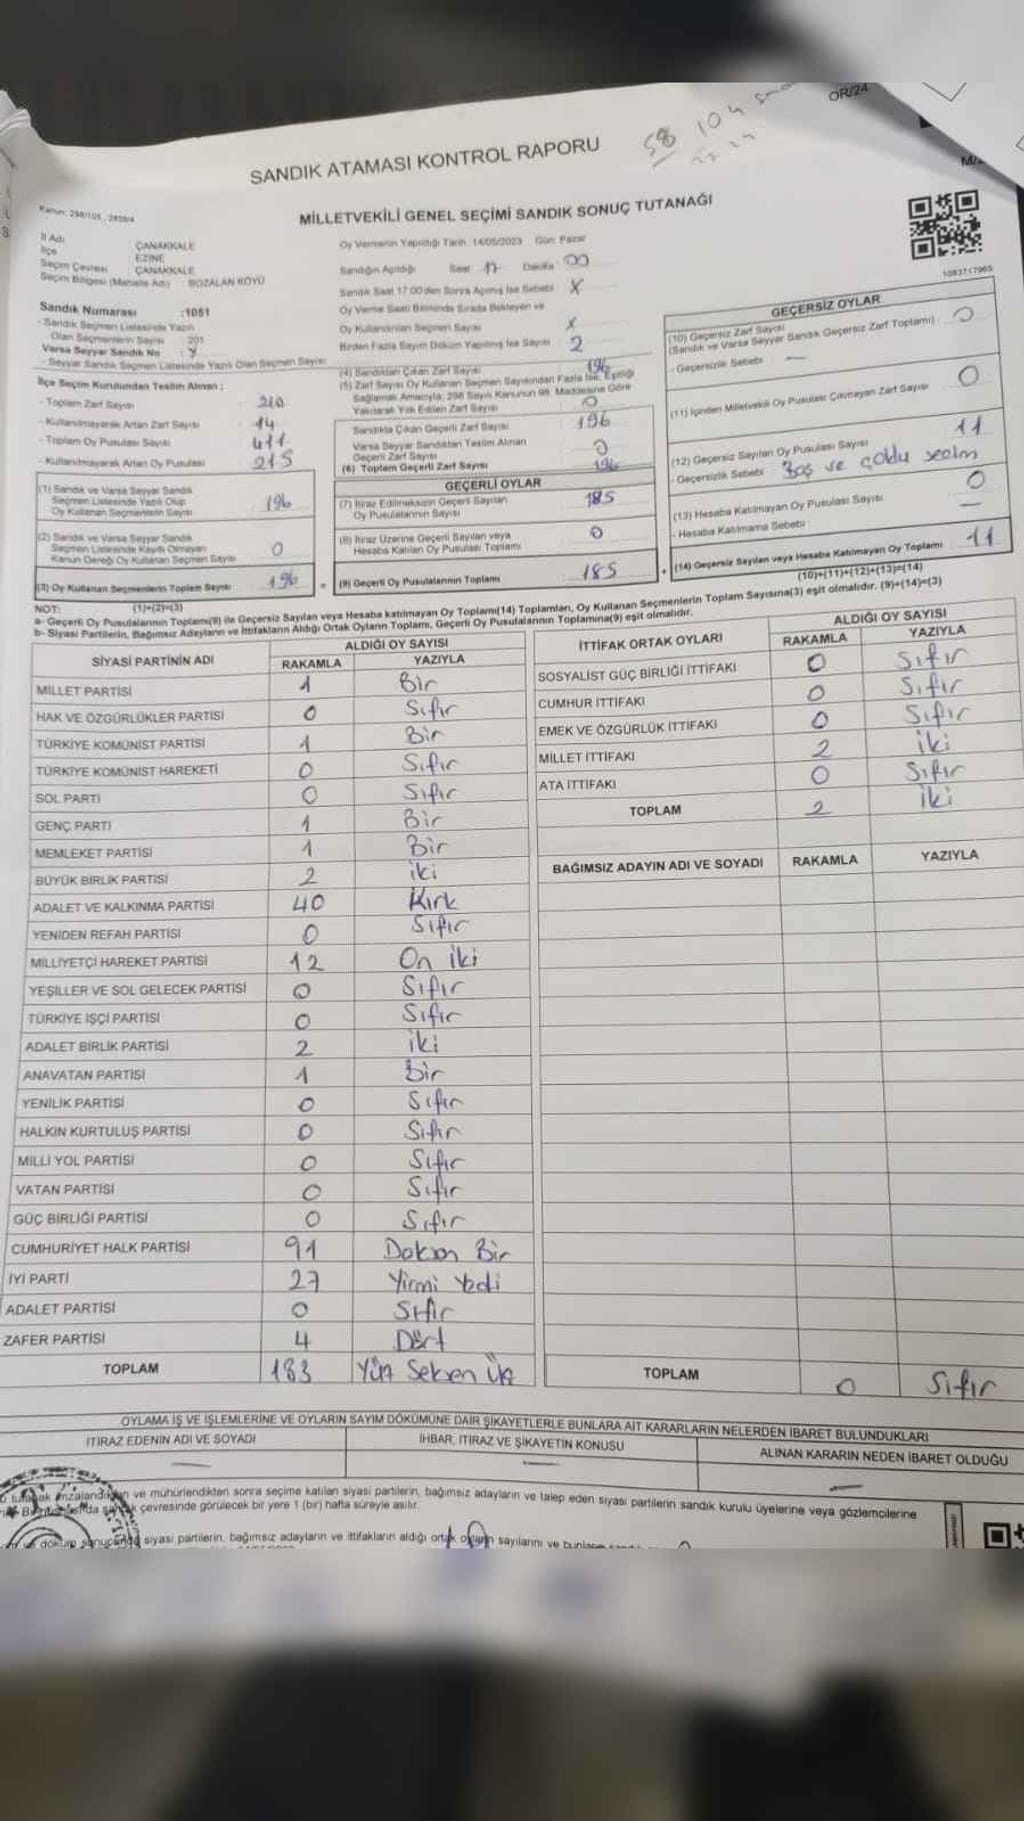 OR/24
58 104
SANDIK ATAMASI KONTROL RAPORU
Kanun: 298/105, 2839/4
MİLLETVEKİLİ GENEL SEÇİMİ SANDIK SONUÇ TUTANAĞI
1083717965
İl Adı ÇANAKKALE
İlçe EZİNE
Seçim Çevresi ÇANAKKALE
Seçim Bölgesi (Mahalle Adı) BOZALAN KÖYÜ
Sandık Numarası :1051
- Sandık Seçmen Listesinde Yazılı
Olan Seçmenlerin Sayısı 201
Varsa Seyyar Sandık No : Y
- Seyyar Sandık Seçmen Listesinde Yazılı Olan Seçmen Sayısı:
Oy Vermenin Yapıldığı Tarih :14/05/2023 Gün: Pazar
Sandığın Açıldığı Saat 17 Dakika 00
Sandık Saat 17:00'den Sonra Açılmış İse Sebebi X
Oy Verme Saati Bitiminde Sırada Bekleyen ve
Oy Kullandırılan Seçmen Sayısı X
Birden Fazla Sayım Döküm Yapılmış İse Sayısı 2
İlçe Seçim Kurulundan Teslim Alınan :
- Toplam Zarf Sayısı 210
- Kullanılmayarak Artan Zarf Sayısı 14
- Toplam Oy Pusulası Sayısı 411
- Kullanılmayarak Artan Oy Pusulası 215
(1) Sandık ve Varsa Seyyar Sandık
Seçmen Listesinde Yazılı Olup
Oy Kullanan Seçmenlerin Sayısı 196
(2) Sandık ve Varsa Seyyar Sandık
Seçmen Listesinde Kayıtlı Olmayan
Kanun Gereği Oy Kullanan Seçmen Sayısı 0
(3) Oy Kullanan Seçmenlerin Toplam Sayısı 196
(1)+(2)=(3)
(4) Sandıktan Çıkan Zarf Sayısı 196
(5) Zarf Sayısı Oy Kullanan Seçmen Sayısından Fazla İse, Eşitliği
Sağlamak Amacıyla; 298 Sayılı Kanunun 98. Maddesine Göre
Yakılarak Yok Edilen Zarf Sayısı 0
Sandıkta Çıkan Geçerli Zarf Sayısı 196
Varsa Seyyar Sandıktan Teslim Alınan
Geçerli Zarf Sayısı 0
(6) Toplam Geçerli Zarf Sayısı 196
GEÇERLİ OYLAR
(7) İtiraz Edilmeksizin Geçerli Sayılan
Oy Pusulalarının Sayısı 185
(8) İtiraz Üzerine Geçerli Sayılan veya
Hesaba Katılan Oy Pusulası Toplamı 0
(9) Geçerli Oy Pusulalarının Toplamı 185
GEÇERSİZ OYLAR
(10) Geçersiz Zarf Sayısı
(Sandık ve Varsa Seyyar Sandık Geçersiz Zarf Toplamı) 0
- Geçersizlik Sebebi —
(11) İçinden Milletvekili Oy Pusulası Çıkmayan Zarf Sayısı 0
(12) Geçersiz Sayılan Oy Pusulası Sayısı 11
- Geçersizlik Sebebi Boş ve çoklu seçim
(13) Hesaba Katılmayan Oy Pusulası Sayısı 0
- Hesaba Katılmama Sebebi —
(14) Geçersiz Sayılan veya Hesaba Katılmayan Oy Toplamı 11
(10)+(11)+(12)+(13)=(14)
NOT:
a- Geçerli Oy Pusulalarının Toplamı(9) ile Geçersiz Sayılan veya Hesaba katılmayan Oy Toplamı(14) Toplamları, Oy Kullanan Seçmenlerin Toplam Sayısına(3) eşit olmalıdır. (9)+(14)=(3)
b- Siyasi Partilerin, Bağımsız Adayların ve İttifakların Aldığı Ortak Oyların Toplamı, Geçerli Oy Pusulalarının Toplamına(9) eşit olmalıdır.
SİYASİ PARTİNİN ADI ALDIĞI OY SAYISI
RAKAMLA YAZIYLA
MİLLET PARTİSİ 1 Bir
HAK VE ÖZGÜRLÜKLER PARTİSİ 0 Sıfır
TÜRKİYE KOMÜNİST PARTİSİ 1 Bir
TÜRKİYE KOMÜNİST HAREKETİ 0 Sıfır
SOL PARTİ 0 Sıfır
GENÇ PARTİ 1 Bir
MEMLEKET PARTİSİ 1 Bir
BÜYÜK BİRLİK PARTİSİ 2 iki
ADALET VE KALKINMA PARTİSİ 40 Kırk
YENİDEN REFAH PARTİSİ 0 Sıfır
MİLLİYETÇİ HAREKET PARTİSİ 12 On iki
YEŞİLLER VE SOL GELECEK PARTİSİ 0 Sıfır
TÜRKİYE İŞÇİ PARTİSİ 0 Sıfır
ADALET BİRLİK PARTİSİ 2 iki
ANAVATAN PARTİSİ 1 Bir
YENİLİK PARTİSİ 0 Sıfır
HALKIN KURTULUŞ PARTİSİ 0 Sıfır
MİLLİ YOL PARTİSİ 0 Sıfır
VATAN PARTİSİ 0 Sıfır
GÜÇ BİRLİĞİ PARTİSİ 0 Sıfır
CUMHURİYET HALK PARTİSİ 91 Doksan Bir
İYİ PARTİ 27 Yirmi Yedi
ADALET PARTİSİ 0 Sıfır
ZAFER PARTİSİ 4 Dört
TOPLAM 183 Yüz Seksen Üç
İTTİFAK ORTAK OYLARI ALDIĞI OY SAYISI
RAKAMLA YAZIYLA
SOSYALİST GÜÇ BİRLİĞİ İTTİFAKI 0 Sıfır
CUMHUR İTTİFAKI 0 Sıfır
EMEK VE ÖZGÜRLÜK İTTİFAKI 0 Sıfır
MİLLET İTTİFAKI 2 iki
ATA İTTİFAKI 0 Sıfır
TOPLAM 2 iki
BAĞIMSIZ ADAYIN ADI VE SOYADI RAKAMLA YAZIYLA
TOPLAM 0 Sıfır
OYLAMA İŞ VE İŞLEMLERİNE VE OYLARIN SAYIM DÖKÜMÜNE DAİR ŞİKAYETLERLE BUNLARA AİT KARARLARIN NELERDEN İBARET BULUNDUKLARI
İTİRAZ EDENİN ADI VE SOYADI İHBAR, İTİRAZ VE ŞİKAYETİN KONUSU ALINAN KARARIN NEDEN İBARET OLDUĞU
— — —
tutanak imzalandıktan ve mühürlendikten sonra seçime katılan siyasi partilerin, bağımsız adayların ve talep eden siyasi partilerin sandık kurulu üyelerine veya gözlemcilerine
çevresinde görülecek bir yere 1 (bir) hafta süreyle asılır.
döküm sonucunda siyasi partilerin, bağımsız adayların ve ittifakların aldığı ortak oyların sayılarını ve bunların